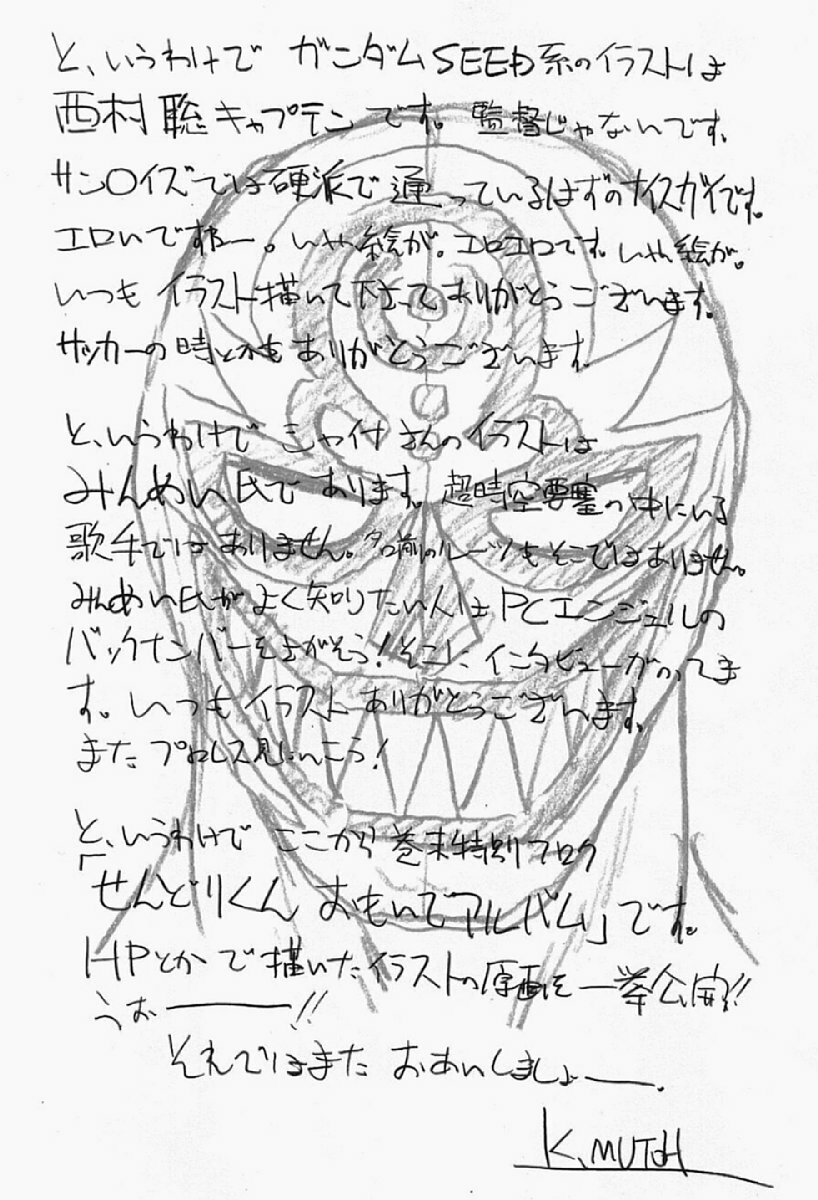 と、いうわけで ガンダムSEED系のイラストは
西村聡キャプテンです。監督じゃないです。
サン○イズでは硬派で通っているはずのナイスガイです。
エロいですねー。いや絵が。エロエロです。いや絵が。
いつもイラスト描いて下さってありがとうございます。
サッカーの時とかもありがとうございます。
と、いうわけで シャイナさんのイラストは
みんめい氏であります。超時空要塞の中にいる
歌手ではありません。名前のルーツもそこではありません。
みんめい氏がよく知りたい人はPCエンジェルの
バックナンバーをさがそう!そこにインタビューがのってま
す。いつもイラストありがとうございます。
またプロレス見にいこう!
と、いうわけで ここから巻末特別フロク
「せんどりくん おもいでアルバム」です。
HPとかで描いたイラストの原画を一挙公開!!
うぉーーー!!
それではまた おあいしましょーー.
K.MUTOH